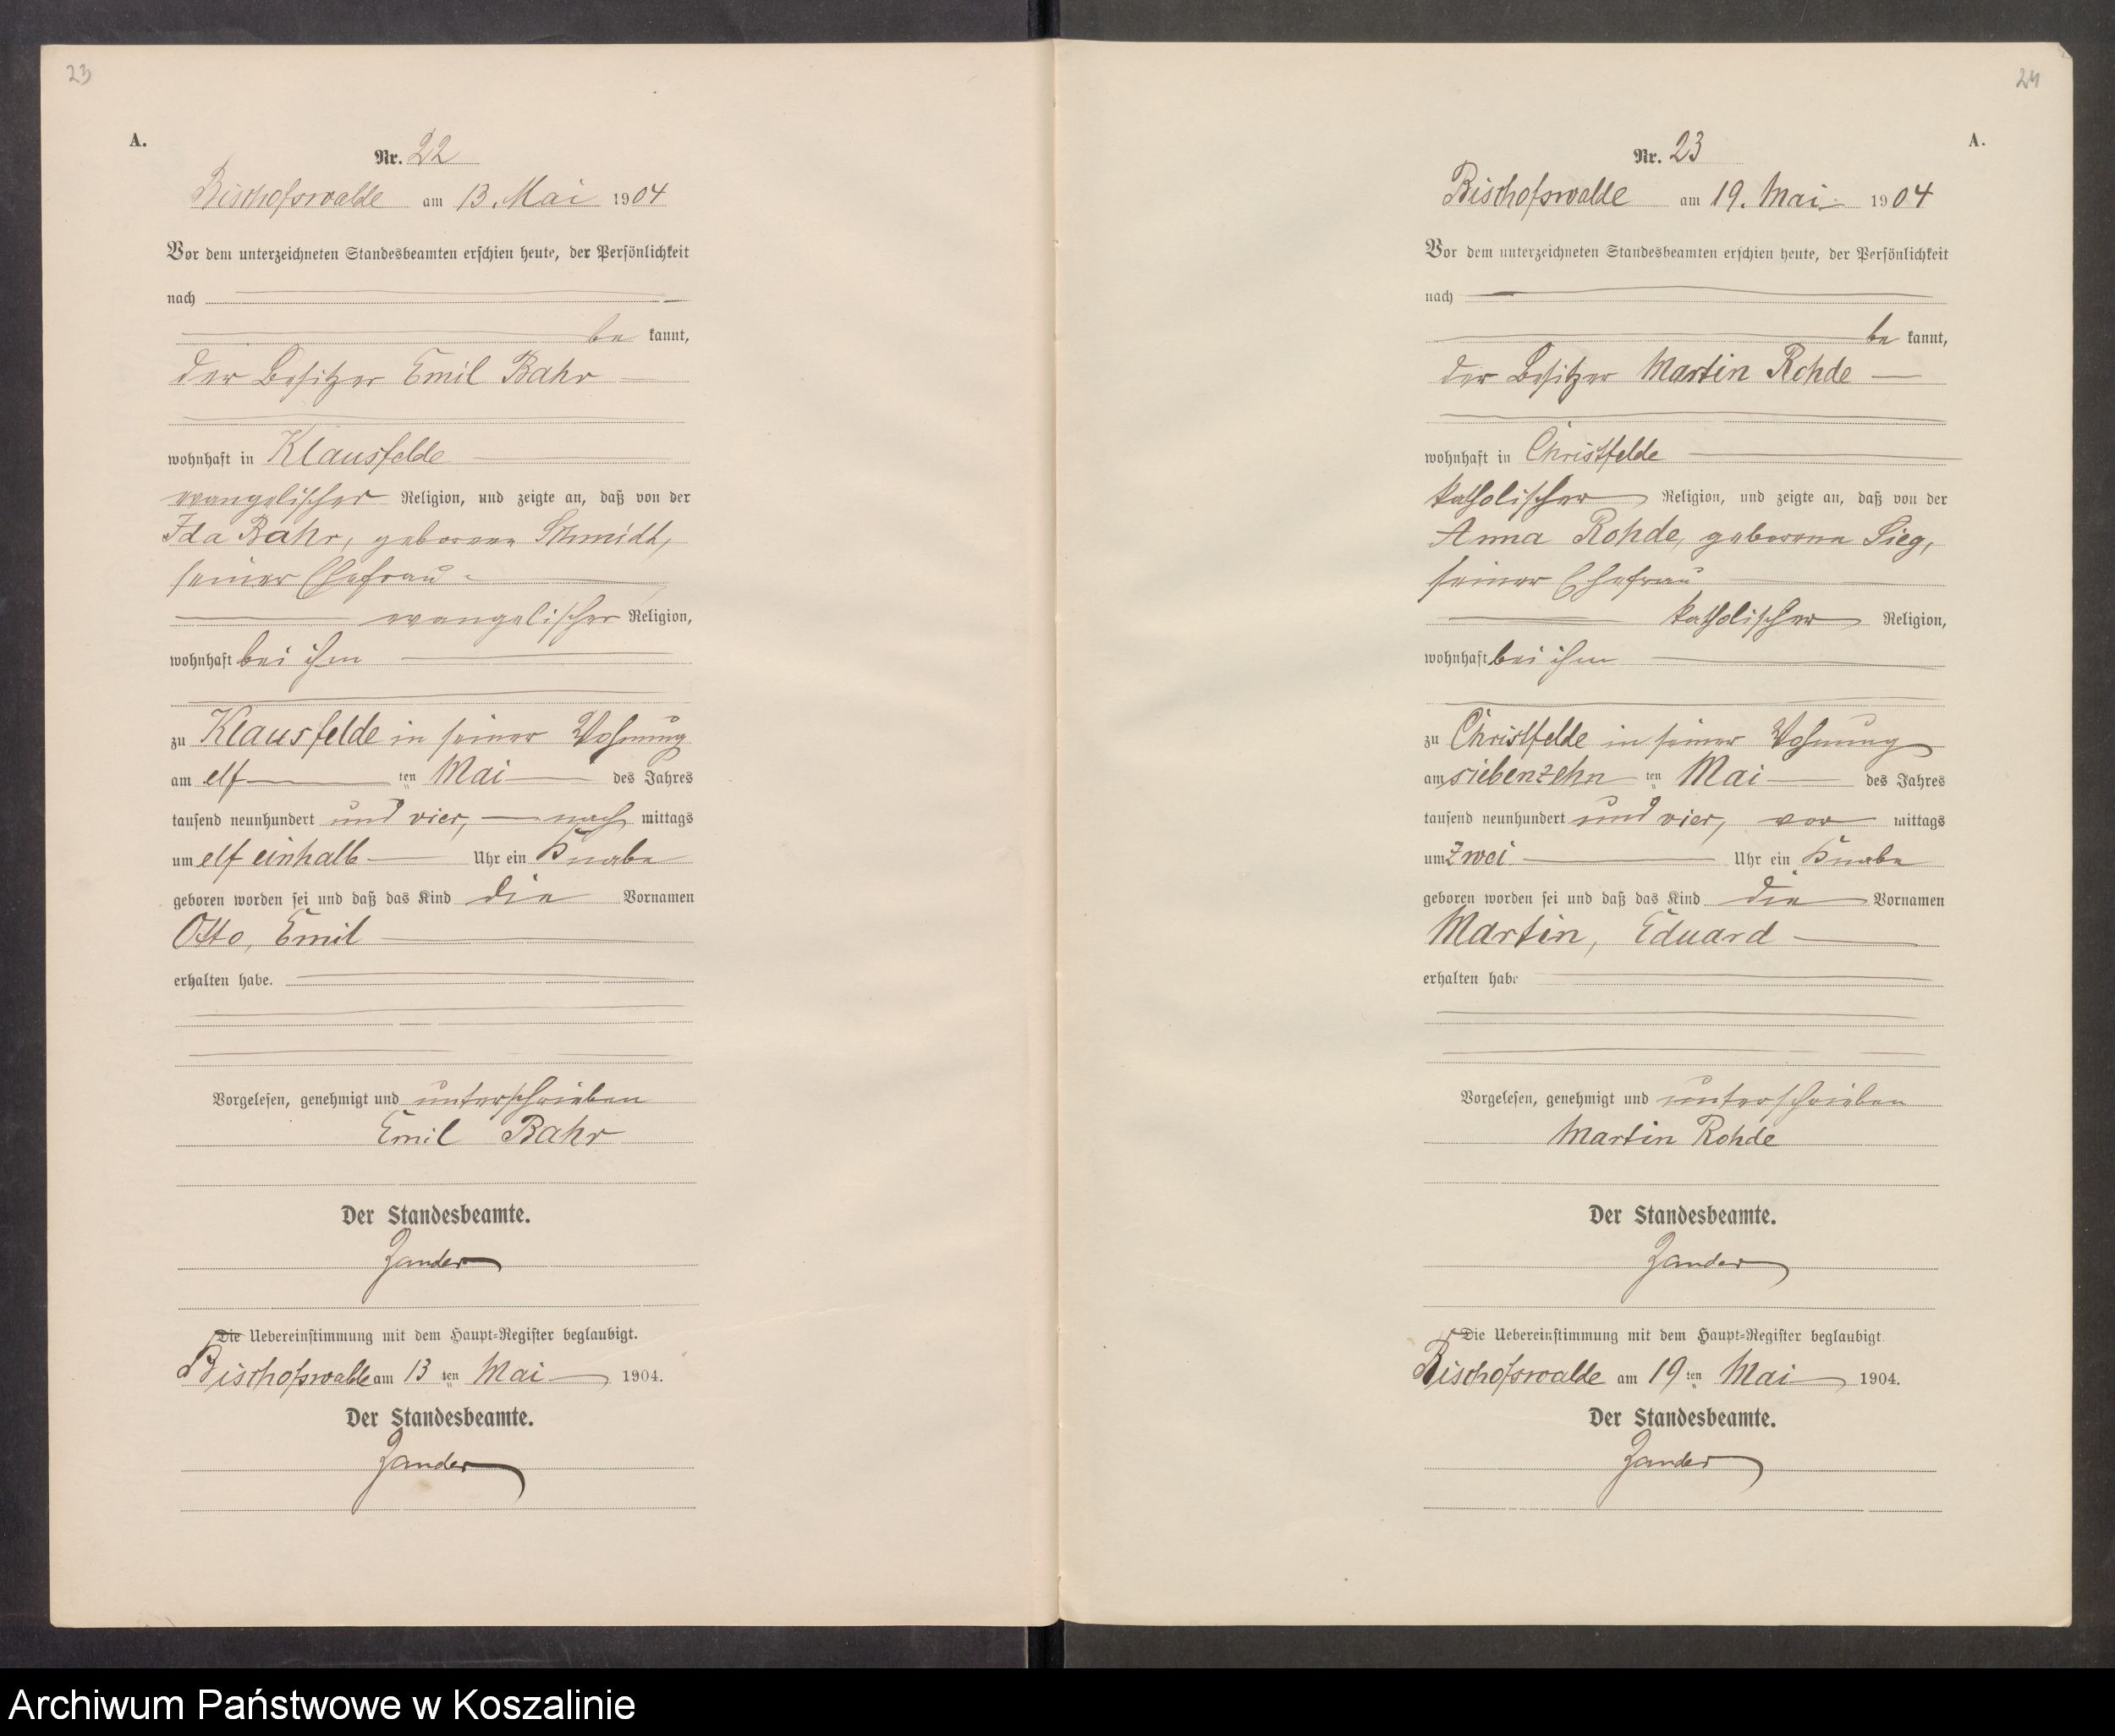 23
A.
Nr. 22
Bischofswalde am 13. Mai 1904
Vor dem unterzeichneten Standesbeamten erschien heute, der Persönlichkeit
nach
be kannt,
der Besitzer Emil Bahr
wohnhaft in Klausfelde
evangelischer Religion, und zeigte an, daß von der
Ida Bahr, geborene Schmidt,
seiner Ehefrau
evangelischer Religion,
wohnhaft bei ihm
zu Klausfelde in seiner Wohnung
am elf ten Mai des Jahres
tausend neunhundert und vier, nach mittags
um elf einhalb Uhr ein Knabe
geboren worden sei und daß das Kind die Vornamen
Otto, Emil
erhalten habe.
Vorgelesen, genehmigt und unterschrieben
Emil Bahr
Der Standesbeamte.
Zander
Die Uebereinstimmung mit dem Haupt-Register beglaubigt.
Bischofswalde am 13 ten Mai 1904.
Der Standesbeamte.
Zander
24
A.
Nr. 23
Bischofswalde am 19. Mai 1904
Vor dem unterzeichneten Standesbeamten erschien heute, der Persönlichkeit
nach
be kannt,
der Besitzer Martin Rohde
wohnhaft in Christfelde
katholischer Religion, und zeigte an, daß von der
Anna Rohde, geborene Sieg,
seiner Ehefrau
katholischer Religion,
wohnhaft bei ihm
zu Christfelde in seiner Wohnung
am siebenzehn ten Mai des Jahres
tausend neunhundert und vier, vor mittags
um zwei Uhr ein Knabe
geboren worden sei und daß das Kind die Vornamen
Martin, Eduard
erhalten habe
Vorgelesen, genehmigt und unterschrieben
Martin Rohde
Der Standesbeamte.
Zander
Die Uebereinstimmung mit dem Haupt-Register beglaubigt.
Bischofswalde am 19 ten Mai 1904.
Der Standesbeamte.
Zander
Archiwum Państwowe w Koszalinie